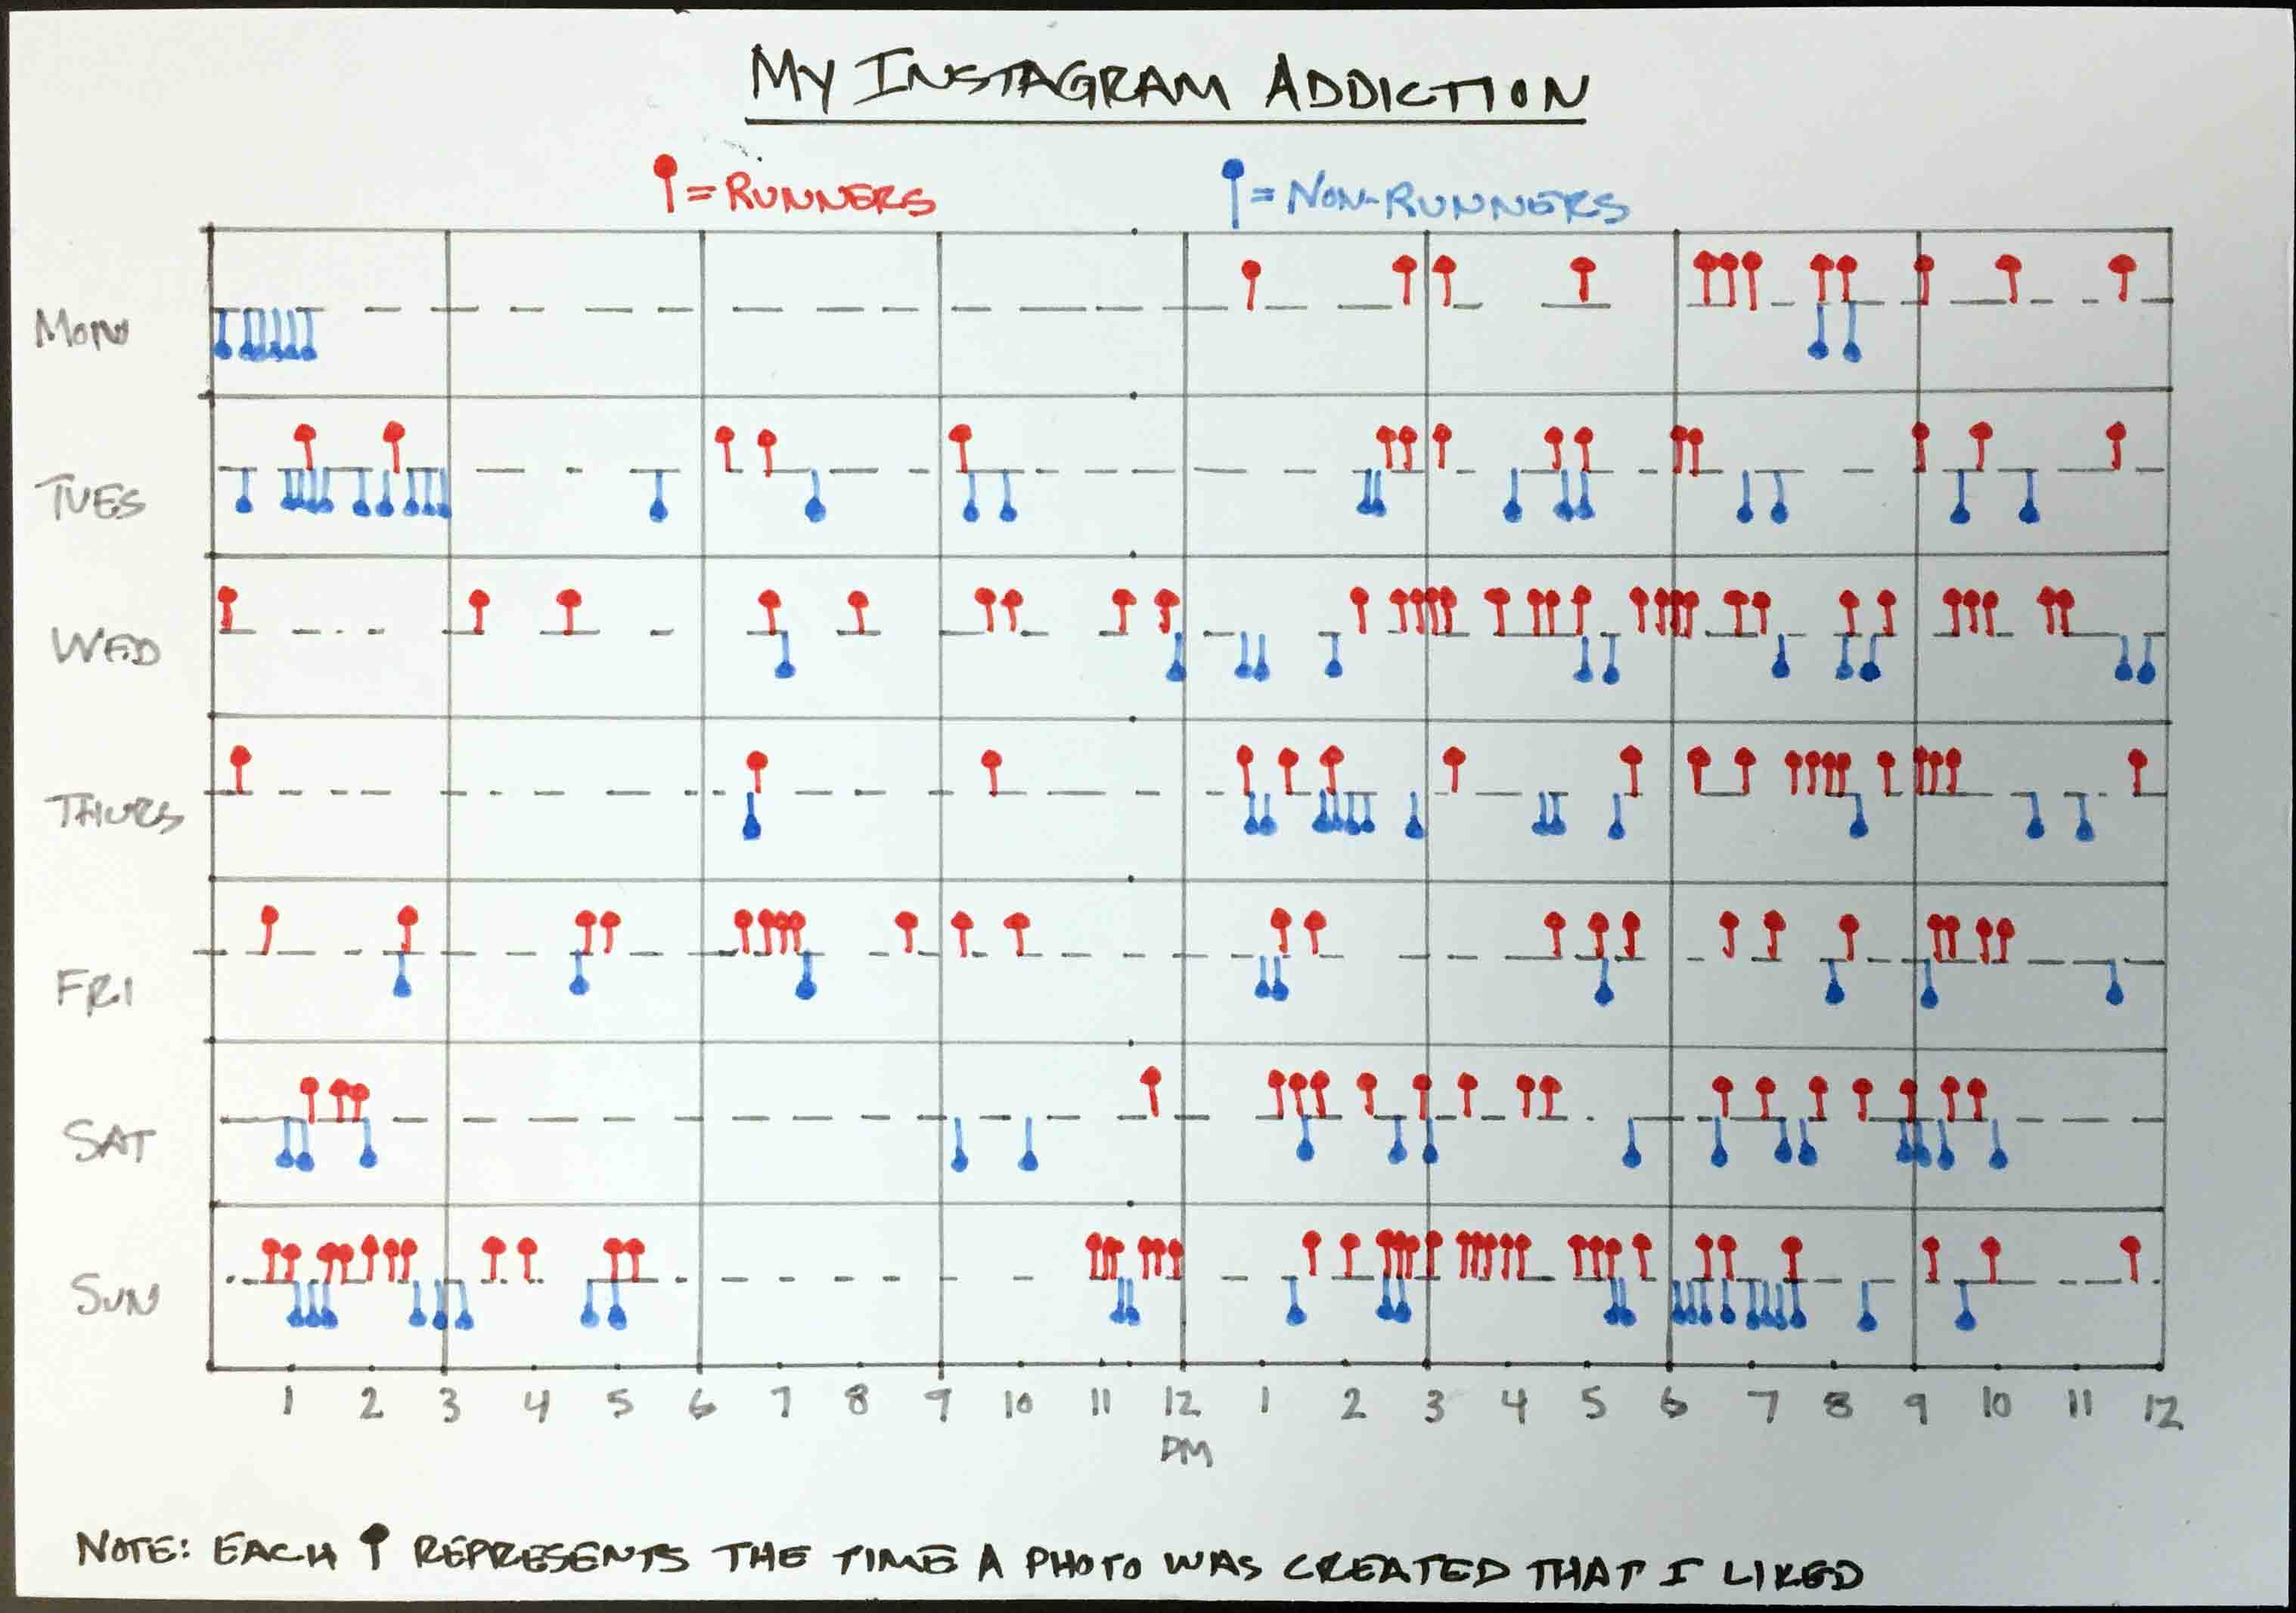 MY INSTAGRAM ADDICTION
= RUNNERS
= NON-RUNNERS
MON
TUES
WED
THURS
FRI
SAT
SUN
1 2 3 4 5 6 7 8 9 10 11 12 1 2 3 4 5 6 7 8 9 10 11 12
PM
NOTE: EACH REPRESENTS THE TIME A PHOTO WAS CREATED THAT I LIKED